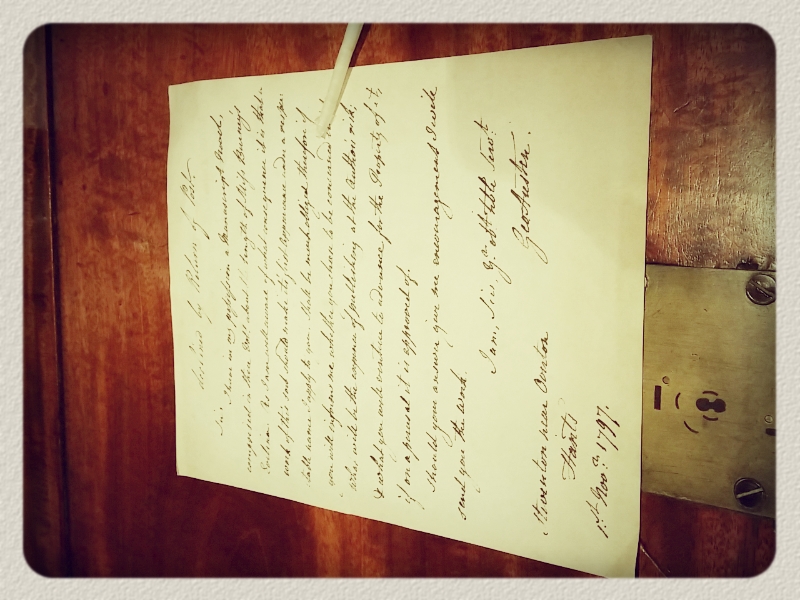 declined by Return of Post
Sir
I have in my possession a Manuscript Novel,
comprised in three Vols. about the length of Miss Burney's
Evelina. As I am well aware of what consequence it is that a
work of this sort should make its first appearance under a respec-
table name I apply to you. Shall be much obliged therefore if
you will inform me whether you chuse to be concerned in it;
What will be the expense of publishing at the Author's risk;
& what you will venture to advance for the Property of it,
if on a perusal it is approved of.
Should your answer give me encouragement I will
send you the work.
I am, Sir, Yr. obt. hble Servt:
Geo Austen.
Steventon near Overton
Hants
1st. Novr. 1797.